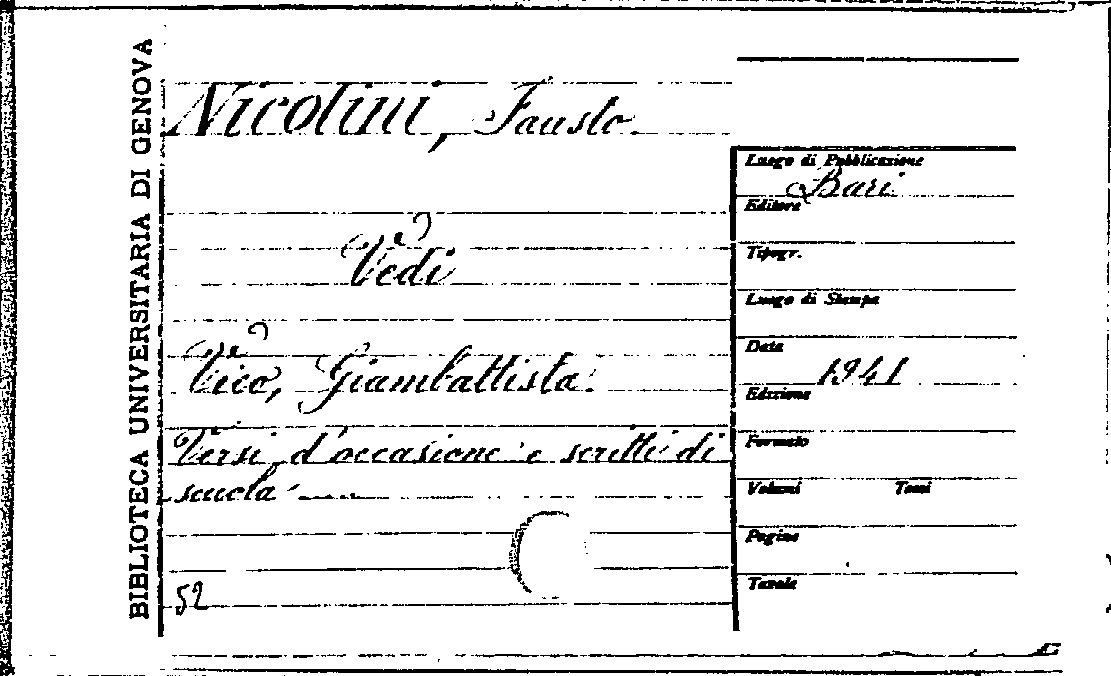 BIBLIOTECA UNIVERSITARIA DI GENOVA
Nicolini, Fausto
Vedi
Vico, Giambattista.
Versi d'occasione e scritti di
scuola
52
Luogo di Pubblicazione
Bari
Editore
Tipogr.
Luogo di Stampa
Data
1941
Edizione
Formato
Volumi Tomi
Pagine
Tavole